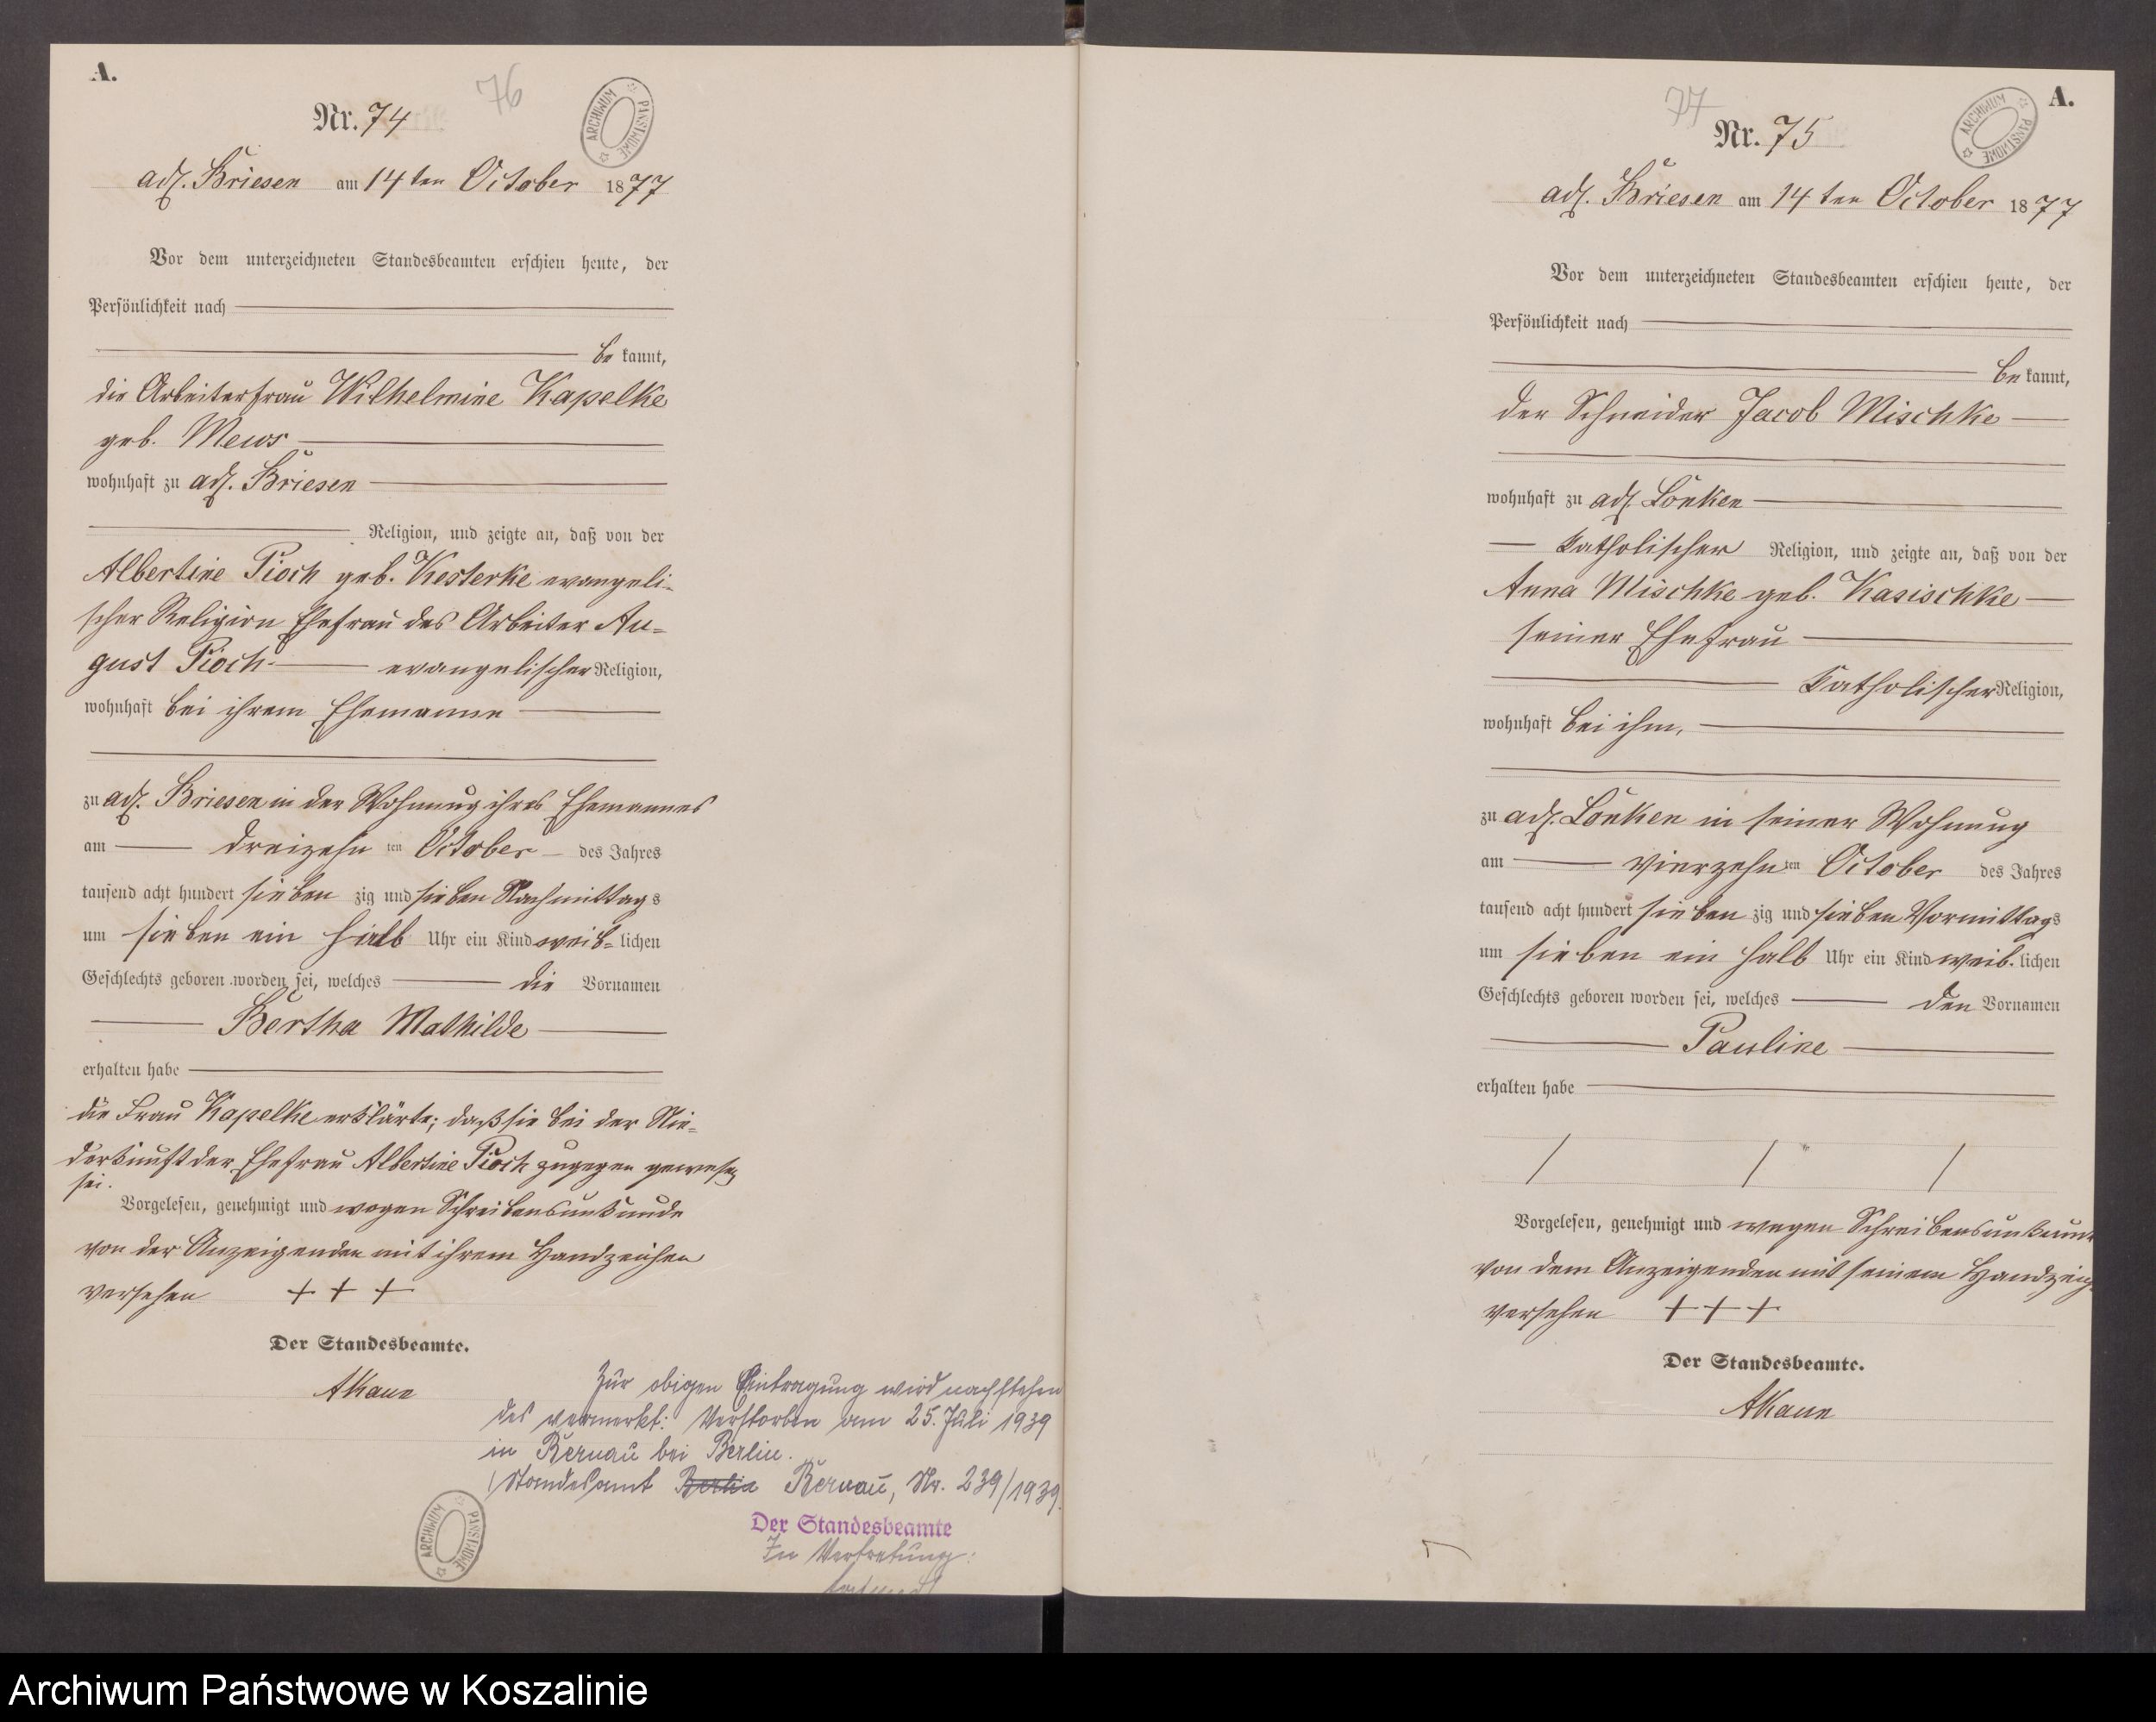 A.
76
Nr. 74
ARCHIWUM PAŃSTWOWE
adl. Briesen am 14ten October 1877
Vor dem unterzeichneten Standesbeamten erschien heute, der
Persönlichkeit nach
be kannt,
die Arbeiterfrau Wilhelmine Kapelke
geb. Mews
wohnhaft zu adl. Briesen
Religion, und zeigte an, daß von der
Albertine Pioch geb. Kesterke evangeli-
scher Religion Ehefrau des Arbeiter Au=
gust Pioch evangelischer Religion,
wohnhaft bei ihrem Ehemanne
zu adl. Briesen in der Wohnung ihres Ehemannes
am dreizehn ten October des Jahres
tausend acht hundert sieben zig und sieben Nachmittags
um sieben ein halb Uhr ein Kind weib= lichen
Geschlechts geboren worden sei, welches die Vornamen
Bertha Mathilde
erhalten habe
die Frau Kapelke erklärte; daß sie bei der Nie=
derkunft der Ehefrau Albertine Pioch zugegen gewesen
sei.
Vorgelesen, genehmigt und wegen Schreibensunkunde
von der Anzeigenden mit ihrem Handzeichen
versehen + + +
Der Standesbeamte.
AKaun
Zur obigen Eintragung wird nachstehen
des vermerkt: Verstorben am 25. Juli 1939
in Bernau bei Berlin.
(Standesamt Berlin Bernau, Nr. 239/1939.
Der Standesbeamte
In Vertretung:
ARCHIWUM PAŃSTWOWE
77
A.
Nr. 75
ARCHIWUM PAŃSTWOWE
adl. Briesen am 14ten October 1877
Vor dem unterzeichneten Standesbeamten erschien heute, der
Persönlichkeit nach
be kannt,
der Schneider Jacob Mischke
wohnhaft zu adl. Lonken
katholischer Religion, und zeigte an, daß von der
Anna Mischke geb. Kasischke
seiner Ehefrau
katholischer Religion,
wohnhaft bei ihm,
zu adl. Lonken in seiner Wohnung
am vierzehn ten October des Jahres
tausend acht hundert sieben zig und sieben Vormittags
um sieben ein halb Uhr ein Kind weib- lichen
Geschlechts geboren worden sei, welches den Vornamen
Pauline
erhalten habe
Vorgelesen, genehmigt und wegen Schreibensunkun
von dem Anzeigenden mit seinem Handzeich
versehen + + +
Der Standesbeamte.
AKaun
Archiwum Państwowe w Koszalinie